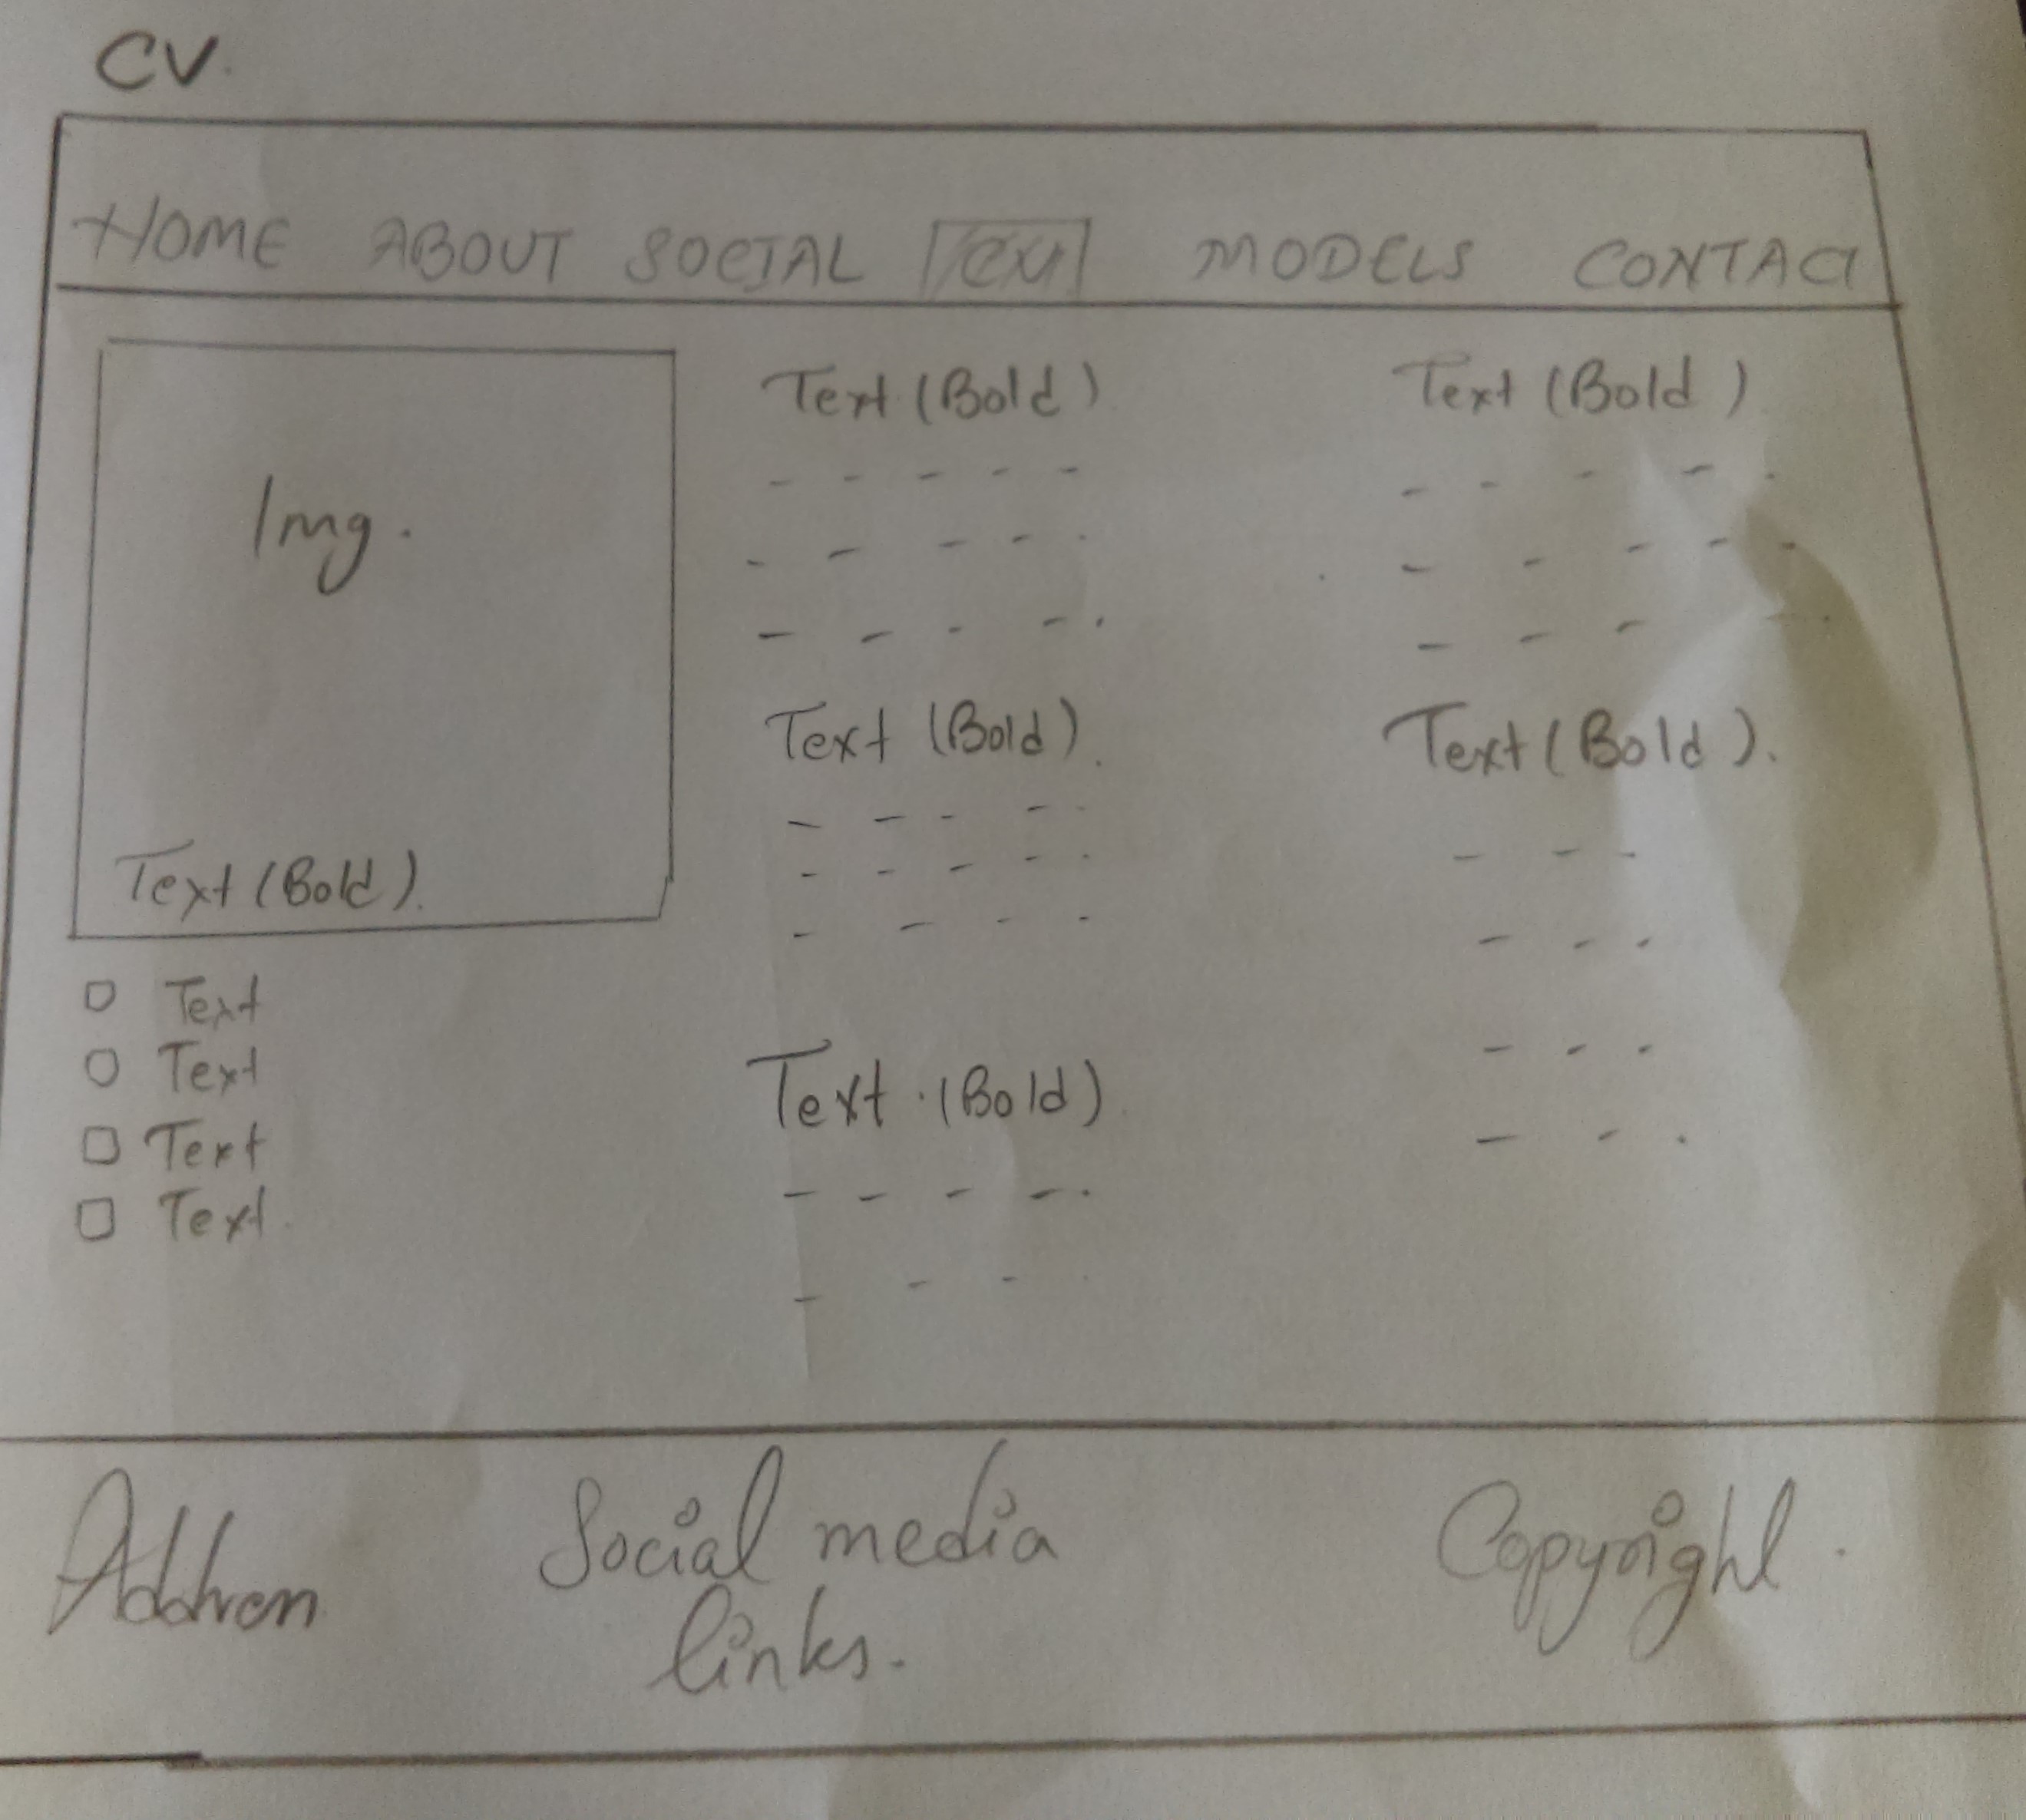 CV.
HOME ABOUT SOCIAL Text MODELS CONTACT
Img.
Text (Bold).
Text
Text
Text
Text.
Text (Bold)
Text (Bold).
Text. (Bold)
Text (Bold)
Text (Bold).
Address
Social media
links.
Copyright.